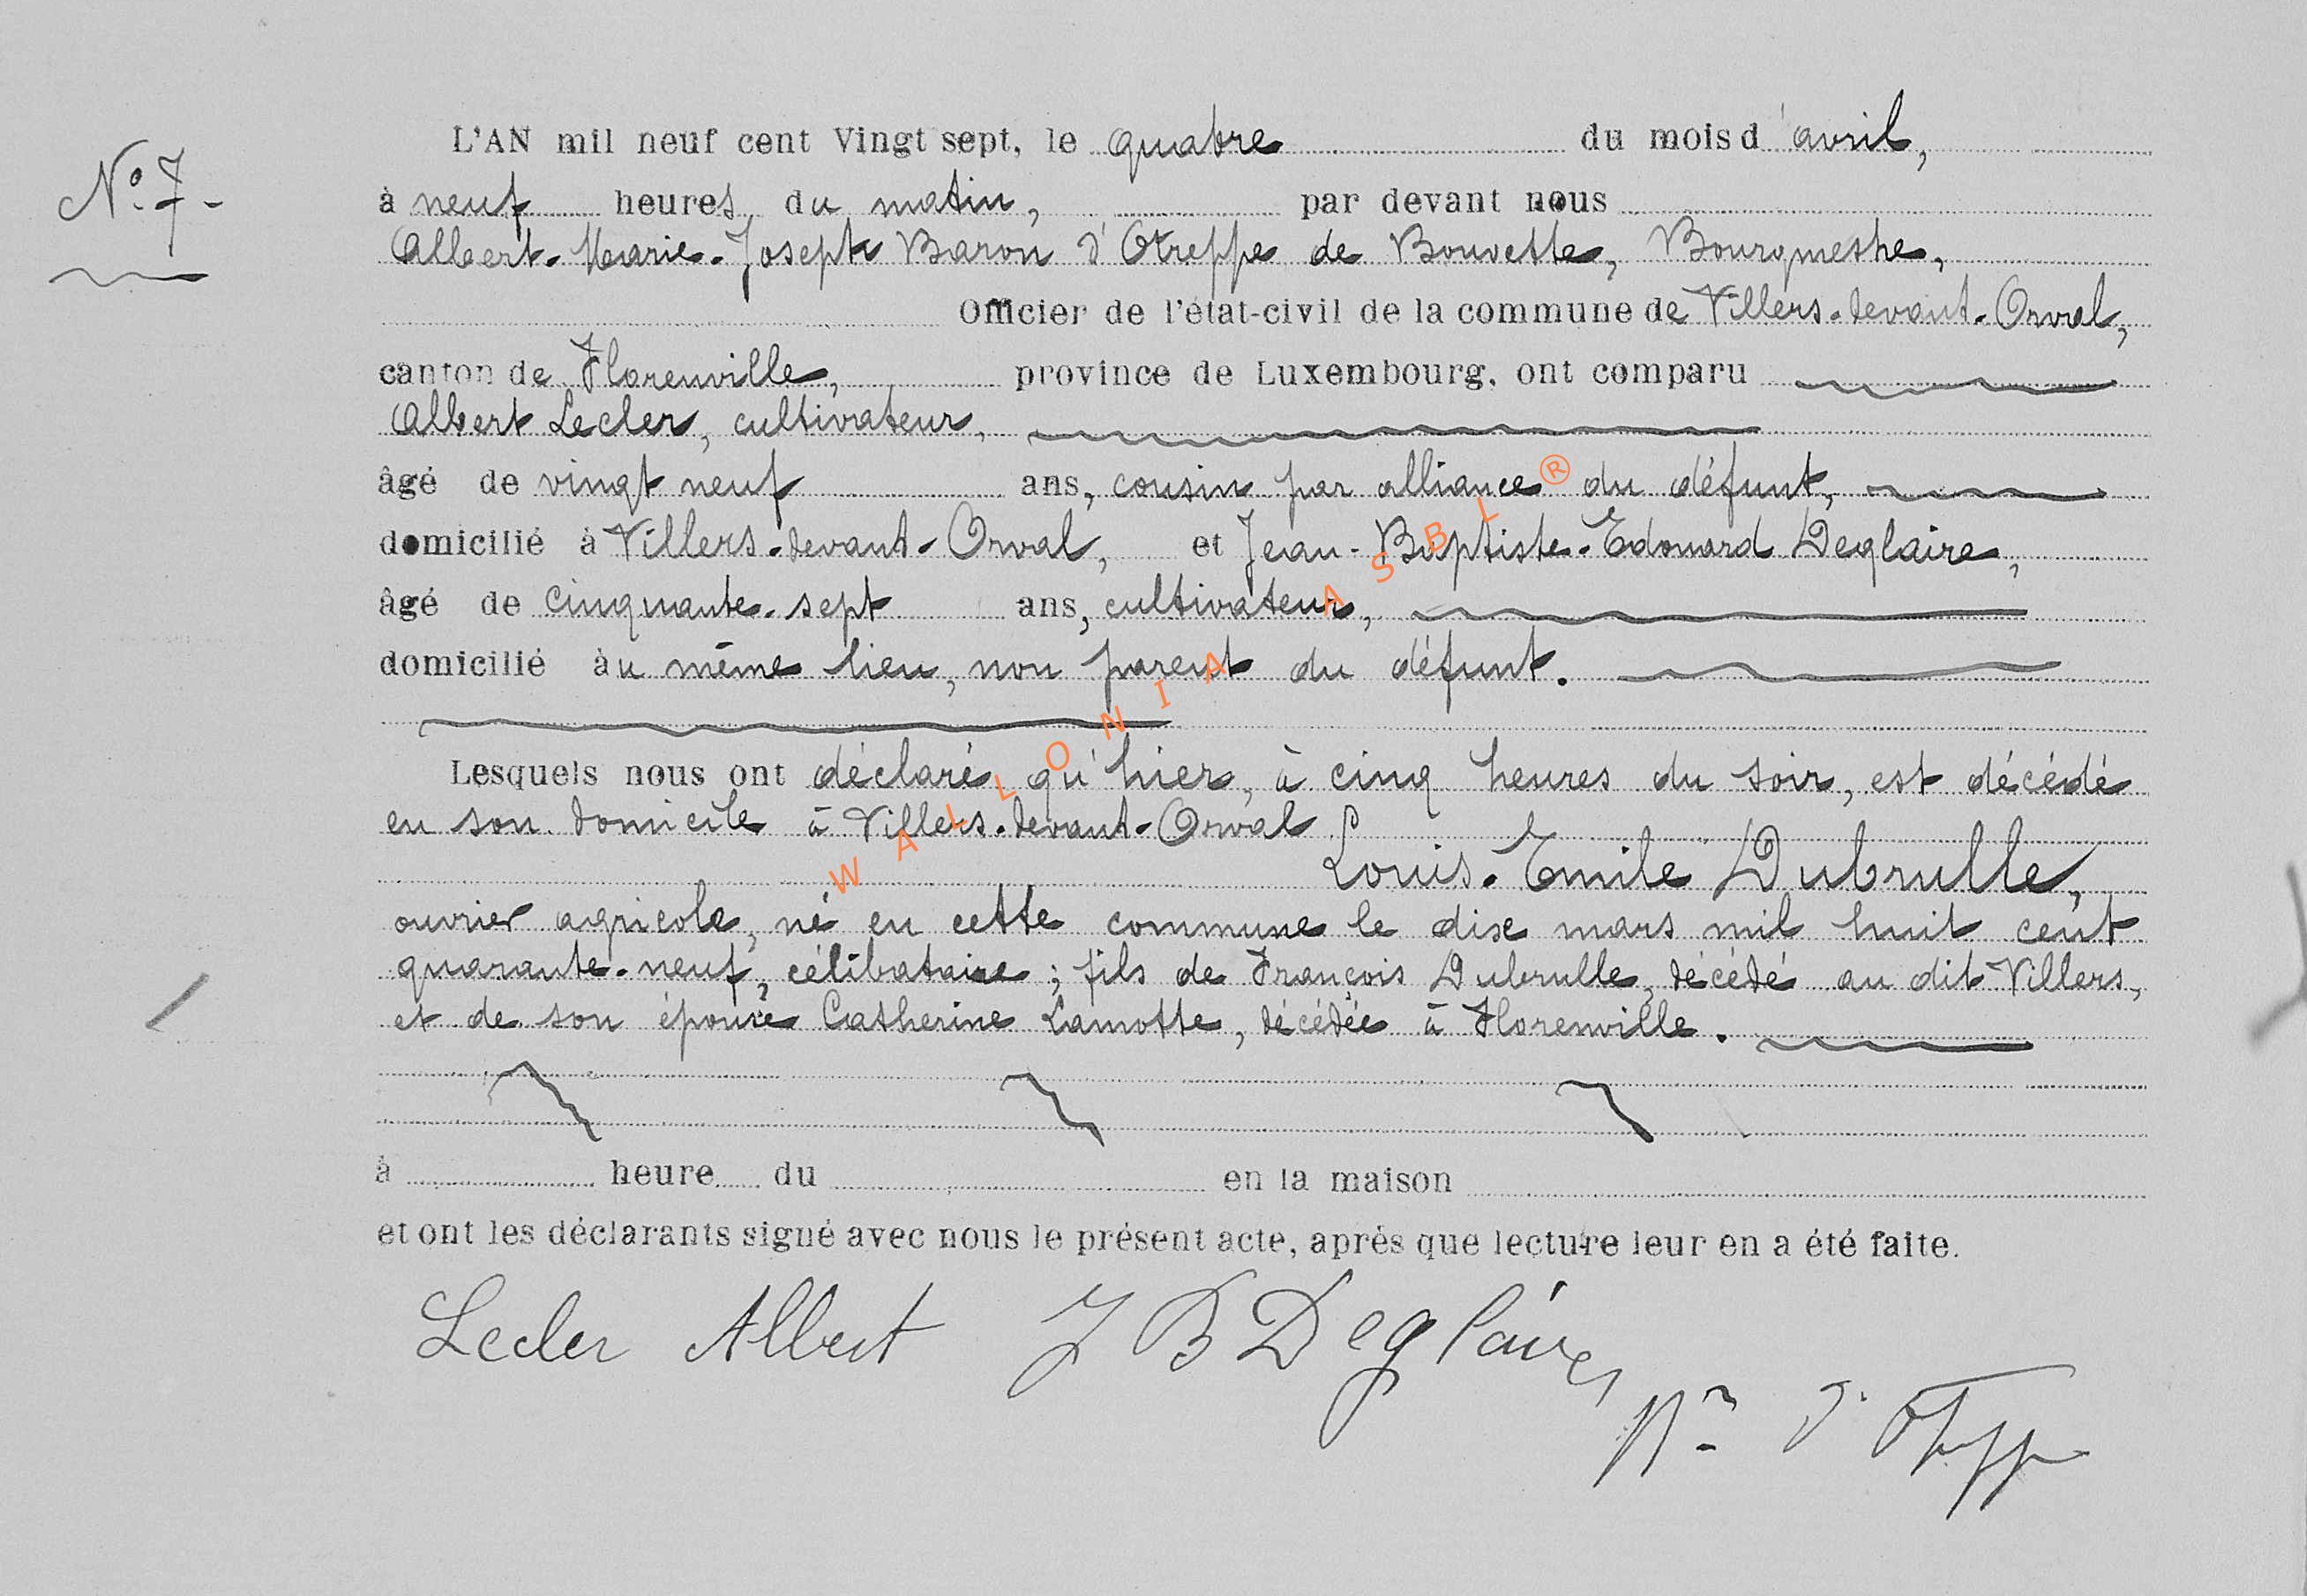 L'AN mil neuf cent Vingt sept, le quatre du mois d'avril,
N° 7 -
à neuf heures du matin, par devant nous
Albert-Marie-Joseph Baron d'Otreppe de Bouvette, Bourgmestre,
Officier de l'état-civil de la commune de Villers-devant-Orval,
canton de Florenville, province de Luxembourg, ont comparu
Albert Lecler, cultivateur,
âgé de vingt neuf ans, cousin par alliance du défunt,
domicilié à Villers-devant-Orval, et Jean-Baptiste-Edouard Deglaire,
âgé de cinquante-sept ans, cultivateur,
domicilié àu même lieu, non parent du défunt.
Lesquels nous ont déclaré qu'hier, à cinq heures du soir, est décédé
en son domicile à Villers-devant-Orval
Louis-Emile Dubrulle,
ouvrier agricole, né en cette commune le dix mars mil huit cent
quarante-neuf, célibataire ; fils de François Dubrulle, décédé au dit Villers,
et de son épouse Catherine Lamotte, décédée à Florenville.
à heure du en la maison
et ont les déclarants signé avec nous le présent acte, après que lecture leur en a été faite.
Lecler Albert J B Deglaire
d'Otreppe
WALLONIA ASBL ®